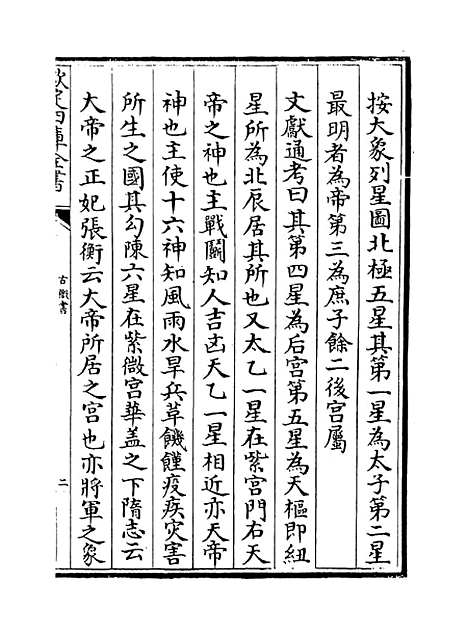 按大象列星圖北極五星其第一星為太子第二星
最明者為帝第三為庶子餘二後宫屬
文獻通考曰其第四星為后宫第五星為天樞即紐
星所為北辰居其所也又太乙一星在紫宫門右天
帝之神也主戰鬭知人吉凶天乙一星相近亦天帝
神也主使十六神知風雨水旱兵草饑饉疫疾災害
所生之國其勾陳六星在紫微宫華盖之下隋志云
大帝之正妃張衡云大帝所居之宫也亦將軍之象
欽定四庫全書
古微書
二